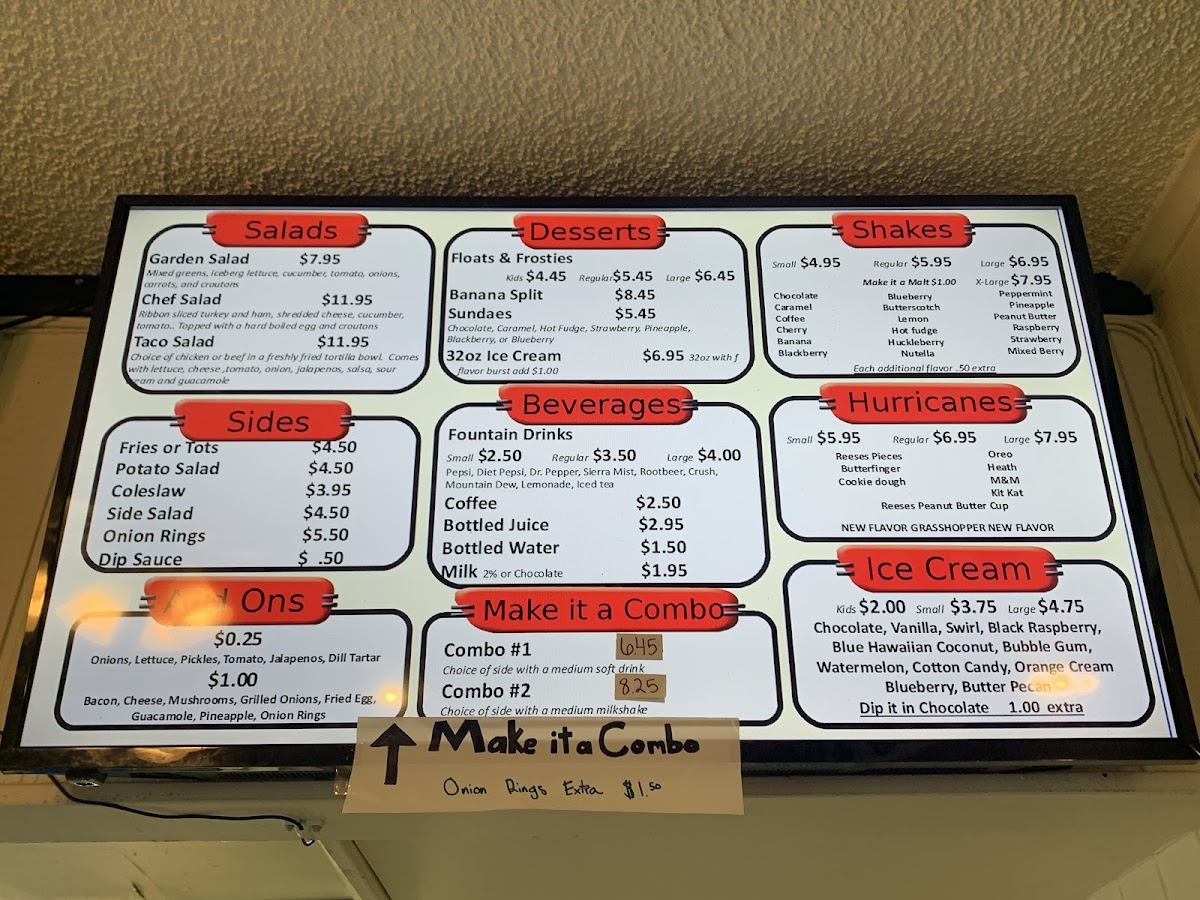 Salads
Garden Salad $7.95
Mixed greens, iceberg lettuce, cucumber, tomato, onions,
carrots, and croutons
Chef Salad $11.95
Ribbon sliced turkey and ham, shredded cheese, cucumber,
tomato.. Topped with a hard boiled egg and croutons
Taco Salad $11.95
Choice of chicken or beef in a freshly fried tortilla bowl. Comes
with lettuce, cheese ,tomato, onion, jalapenos, salsa, sour
cream and guacamole
Sides
Fries or Tots $4.50
Potato Salad $4.50
Coleslaw $3.95
Side Salad $4.50
Onion Rings $5.50
Dip Sauce $ .50
Add Ons
$0.25
Onions, Lettuce, Pickles, Tomato, Jalapenos, Dill Tartar
$1.00
Bacon, Cheese, Mushrooms, Grilled Onions, Fried Egg,
Guacamole, Pineapple, Onion Rings
Desserts
Floats & Frosties
Kids $4.45 Regular $5.45 Large $6.45
Banana Split $8.45
Sundaes $5.45
Chocolate, Caramel, Hot Fudge, Strawberry, Pineapple,
Blackberry, or Blueberry
32oz Ice Cream $6.95 32oz with f
flavor burst add $1.00
Beverages
Fountain Drinks
Small $2.50 Regular $3.50 Large $4.00
Pepsi, Diet Pepsi, Dr. Pepper, Sierra Mist, Rootbeer, Crush,
Mountain Dew, Lemonade, Iced tea
Coffee $2.50
Bottled Juice $2.95
Bottled Water $1.50
Milk 2% or Chocolate $1.95
Make it a Combo
Combo #1 6.45
Choice of side with a medium soft drink
Combo #2 8.25
Choice of side with a medium milkshake
Make it a Combo
Onion Rings Extra $1.50
Shakes
Small $4.95 Regular $5.95 Large $6.95
Make it a Malt $1.00 X-Large $7.95
Chocolate Blueberry Peppermint
Caramel Butterscotch Pineapple
Coffee Lemon Peanut Butter
Cherry Hot fudge Raspberry
Banana Huckleberry Strawberry
Blackberry Nutella Mixed Berry
Each additional flavor .50 extra
Hurricanes
Small $5.95 Regular $6.95 Large $7.95
Reeses Pieces Oreo
Butterfinger Heath
Cookie dough M&M
Kit Kat
Reeses Peanut Butter Cup
NEW FLAVOR GRASSHOPPER NEW FLAVOR
Ice Cream
Kids $2.00 Small $3.75 Large $4.75
Chocolate, Vanilla, Swirl, Black Raspberry,
Blue Hawaiian Coconut, Bubble Gum,
Watermelon, Cotton Candy, Orange Cream
Blueberry, Butter Pecan
Dip it in Chocolate 1.00 extra